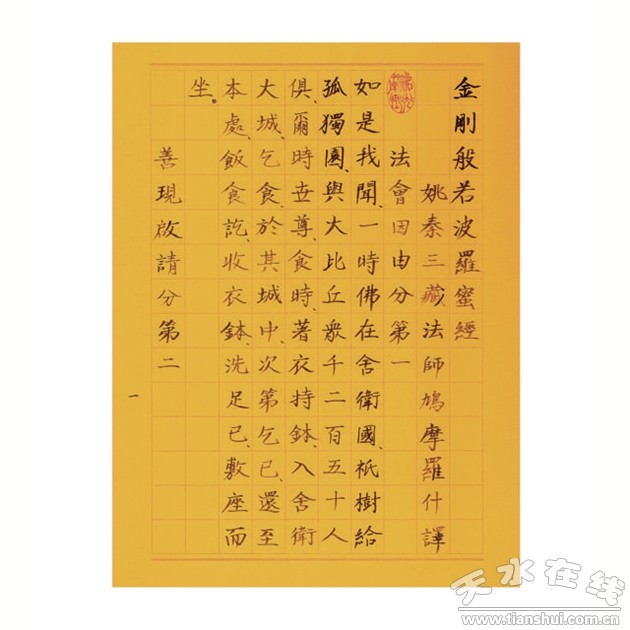 金剛般若波羅蜜經
姚秦三藏法師鳩摩羅什譯
法會因由分第一
如是我聞、一時佛在舍衛國、祇樹給
孤獨園、與大比丘眾千二百五十人
俱、爾時世尊、食時、著衣持鉢、入舍衛
大城、乞食、於其城中、次第乞已、還至
本處、飯食訖、收衣鉢、洗足已、敷座而
坐。
善現啟請分第二
一
天水在线
www.tianshui.com.cn